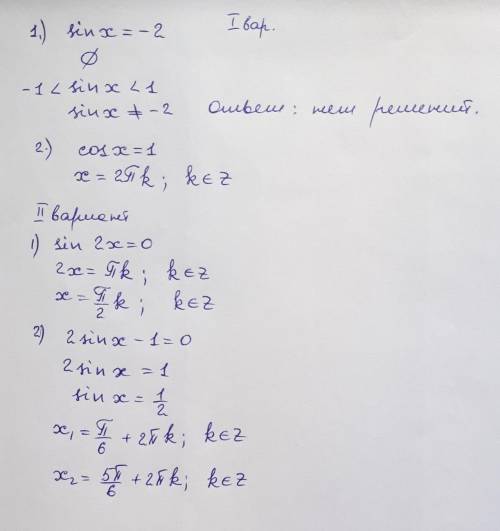 1.) sin x = -2 I вар.
∅
-1 < sin x < 1
sin x ≠ -2 Ответ: нет решений.
2.) cos x = 1
x = 2πk; k ∈ Z
II вариант
1) sin 2x = 0
2x = πk; k ∈ Z
x = π/2 k; k ∈ Z
2) 2 sin x - 1 = 0
2 sin x = 1
sin x = 1/2
x₁ = π/6 + 2πk; k ∈ Z
x₂ = 5π/6 + 2πk; k ∈ Z